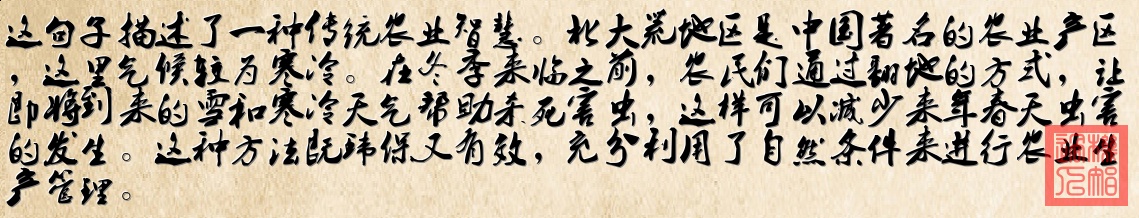 这句子描述了一种传统农业智慧。北大荒地区是中国著名的农业产区
，这里气候较为寒冷。在冬季来临之前，农民们通过翻地的方式，让
即将到来的雪和寒冷天气帮助杀死害虫，这样可以减少来年春天虫害
的发生。这种方法既环保又有效，充分利用了自然条件来进行农业生
产管理。